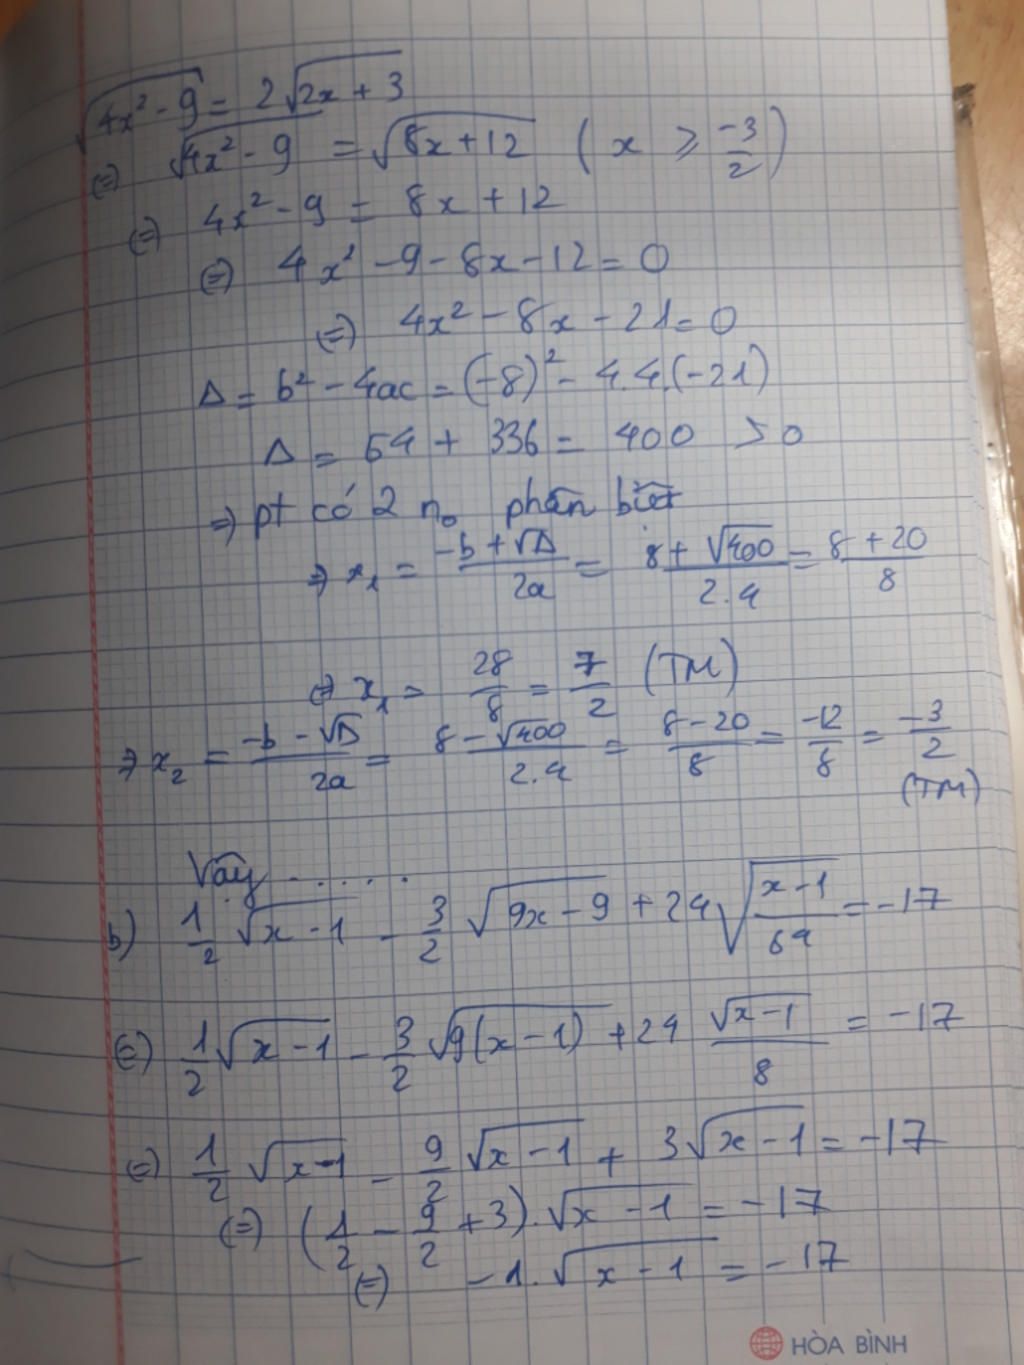 √(4x² - 9) = 2√(2x + 3)
(=) √(4x² - 9) = √(8x + 12) ( x ⩾ -3/2 )
(=) 4x² - 9 = 8x + 12
(=) 4x² - 9 - 8x - 12 = 0
(=) 4x² - 8x - 21 = 0
Δ = b² - 4ac = (-8)² - 4.4.(-21)
Δ = 64 + 336 = 400 > 0
=) pt có 2 n₀ phân biệt
=) x₁ = (-b + √Δ)/2a = (8 + √400)/2.4 = (8 + 20)/8
(=) x₁ = 28/8 = 7/2 (TM)
=) x₂ = (-b - √Δ)/2a = (8 - √400)/2.4 = (8 - 20)/8 = -12/8 = -3/2
(TM)
Vậy . . . . .
b) 1/2 √(x - 1) - 3/2 √(9x - 9) + 24 √((x - 1)/64) = -17
(=) 1/2 √(x - 1) - 3/2 √(9(x - 1)) + 24 √(x - 1)/8 = -17
(=) 1/2 √(x - 1) - 9/2 √(x - 1) + 3√(x - 1) = -17
(=) (1/2 - 9/2 + 3).√(x - 1) = -17
(=) -1.√(x - 1) = -17
HÒA BÌNH